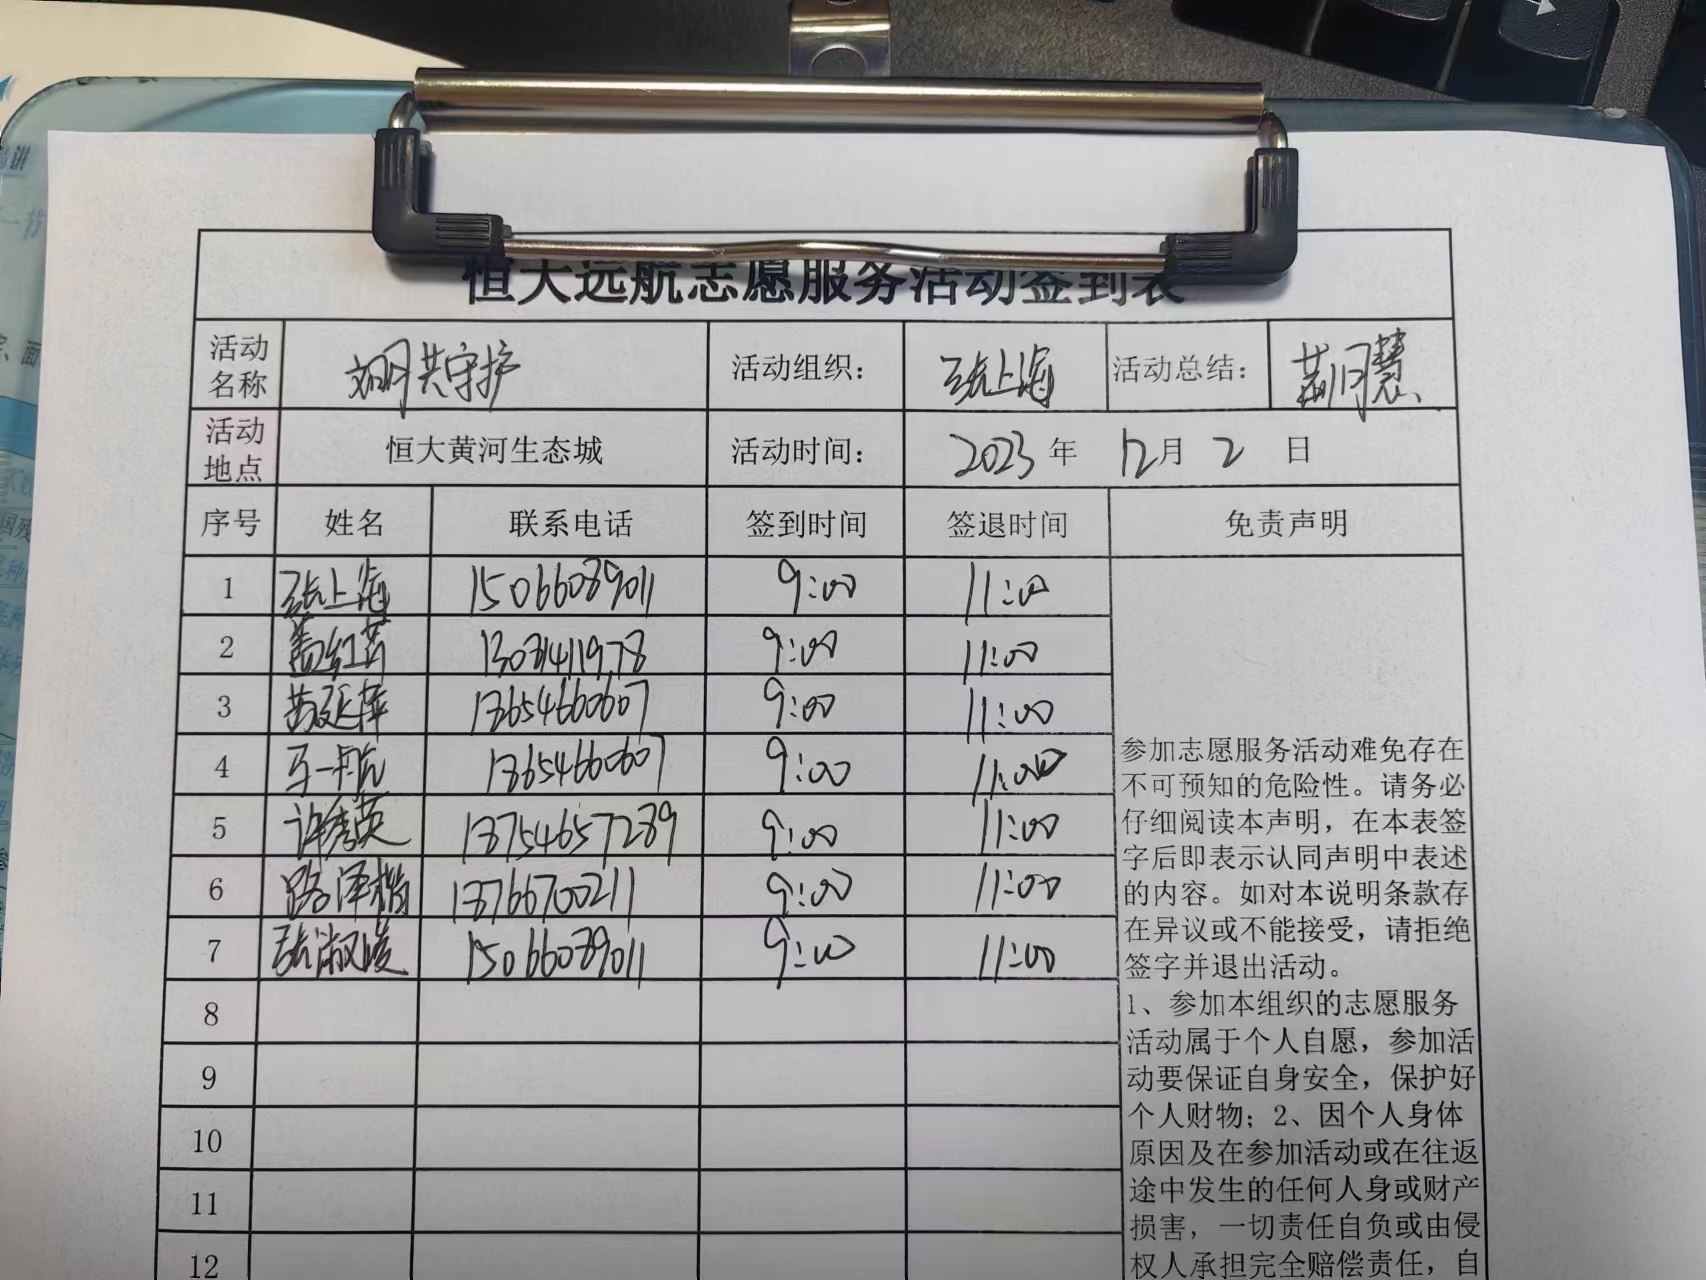 恒大远航志愿服务活动签到表
活动名称 文明共守护 活动组织： 张上海 活动总结：
活动地点 恒大黄河生态城 活动时间： 2023 年 12 月 2 日
序号 姓名 联系电话 签到时间 签退时间 免责声明
1 张上海 15066089011 9:00 11:00
2 13031411978 9:00 11:00
3 13654660607 9:00 11:00
4 马一航 13654660607 9:00 11:00
5 许秀英 13754657289 9:00 11:00
6 13766700211 9:00 11:00
7 张淑凌 15066089011 9:00 11:00
8
9
10
11
12
参加志愿服务活动难免存在
不可预知的危险性。请务必
仔细阅读本声明，在本表签
字后即表示认同声明中表述
的内容。如对本说明条款存
在异议或不能接受，请拒绝
签字并退出活动。
1、参加本组织的志愿服务
活动属于个人自愿，参加活
动要保证自身安全，保护好
个人财物；2、因个人身体
原因及在参加活动或在往返
途中发生的任何人身或财产
损害，一切责任自负或由侵
权人承担完全赔偿责任，自